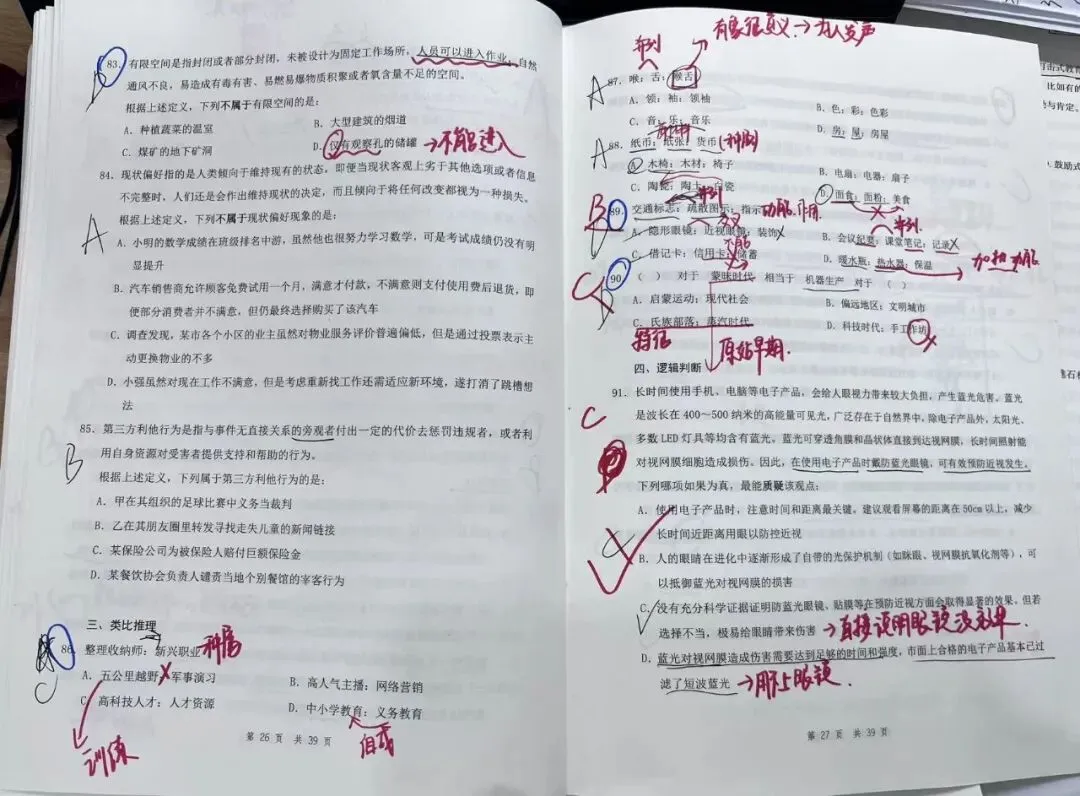 83. 有限空间是指封闭或者部分封闭，未被设计为固定工作场所，人员可以进入作业，自然
通风不良，易造成有毒有害、易燃易爆物质积聚或者氧含量不足的空间。
根据上述定义，下列不属于有限空间的是：
A. 种植蔬菜的温室
B. 大型建筑的烟道
C. 煤矿的地下矿洞
D. 仅有观察孔的储罐 →不能进入
84. 现状偏好指的是人类倾向于维持现有的状态，即便当现状客观上劣于其他选项或者信息
不完整时，人们还是会作出维持现状的决定，而且倾向于将任何改变都视为一种损失。
根据上述定义，下列不属于现状偏好现象的是：
A
A. 小明的数学成绩在班级排名中游，虽然他也很努力学习数学，可是考试成绩仍没有明
显提升
B. 汽车销售商允许顾客免费试用一个月，满意才付款，不满意则支付使用费后退货，即
便部分消费者并不满意，但仍最终选择购买了该汽车
C. 调查发现，某市各个小区的业主虽然对物业服务评价普遍偏低，但是通过投票表示主
动更换物业的不多
D. 小强虽然对现在工作不满意，但是考虑重新找工作还需适应新环境，遂打消了跳槽想
法
85. 第三方利他行为是指与事件无直接关系的旁观者付出一定的代价去惩罚违规者，或者利
用自身资源对受害者提供支持和帮助的行为。
B
根据上述定义，下列属于第三方利他行为的是：
A. 甲在其组织的足球比赛中义务当裁判
B. 乙在其朋友圈里转发寻找走失儿童的新闻链接
C. 某保险公司为被保险人赔付巨额保险金
D. 某餐饮协会负责人谴责当地个别餐馆的宰客行为
三、类比推理
86. 整理收纳师：新兴职业 种属
C
A. 五公里越野：军事演习
B. 高人气主播：网络营销
C. 高科技人才：人才资源
D. 中小学教育：义务教育
训练
组成
第 26 页 共 39 页
并列
有象征意义→为人发声
87. 喉：舌：喉舌
A
A. 领：袖：领袖
B. 色：彩：色彩
C. 音：乐：音乐
D. 房：屋：房屋
88. 纸币：纸张：货币(种属)
A
A. 木椅：木材：椅子
B. 电扇：电器：扇子
C. 陶瓷：陶土：白瓷
D. 面食：面粉：美食
并列
B
89. 交通标志：疏散图示：指示 功能、作用
并列
A. 隐形眼镜：近视眼镜：装饰
B. 会议纪要：课堂笔记：记录
C. 借记卡：信用卡：储蓄
D. 暖水瓶：热水器：保温
加热功能
C
90. （ ）对于 蒙昧时代 相当于 机器生产 对于（ ）
A. 启蒙运动：现代社会
B. 偏远地区：文明城市
C. 氏族部落：蒸汽时代
D. 科技时代：手工作坊
特征
原始早期.
四、逻辑判断
91. 长时间使用手机、电脑等电子产品，会给人眼视力带来较大负担，产生蓝光危害。蓝光
C
是波长在 400～500 纳米的高能量可见光，广泛存在于自然界中，除电子产品外，太阳光、
多数 LED 灯具等均含有蓝光。蓝光可穿透角膜和晶状体直接到达视网膜，长时间照射能
对视网膜细胞造成损伤。因此，在使用电子产品时戴防蓝光眼镜，可有效预防近视发生。
下列哪项如果为真，最能质疑该观点：
A. 使用电子产品时，注意时间和距离最关键。建议观看屏幕的距离在 50cm 以上，减少
长时间近距离用眼以防控近视
B. 人的眼睛在进化中逐渐形成了自带的光保护机制（如眯眼、视网膜抗氧化剂等），可
以抵御蓝光对视网膜的损害
C. 没有充分科学证据证明防蓝光眼镜、贴膜等在预防近视方面会取得显著的效果，但若
选择不当，极易给眼睛带来伤害 →直接说明眼镜没效果.
D. 蓝光对视网膜造成伤害需要达到足够的时间和强度，市面上合格的电子产品基本已过
滤了短波蓝光 →用不上眼镜.
第 27 页 共 39 页